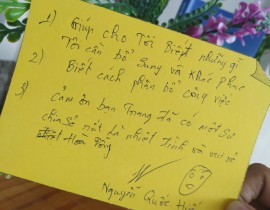 1) Giúp cho Tôi Biết những gì
Tôi cần bổ sung và khắc phục
2) Biết cách phân bổ công việc
3) Cảm ơn bạn Trang đã có một sự
chia sẻ rất là nhiệt tình và vui vẻ
Nguyễn Quốc